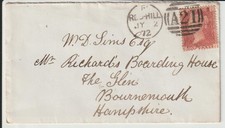 RED HILL
JY 2
72
A21
W.D. Sims Esqr
Mr Richards Boarding House
The Glen
Bournemouth
Hampshire.